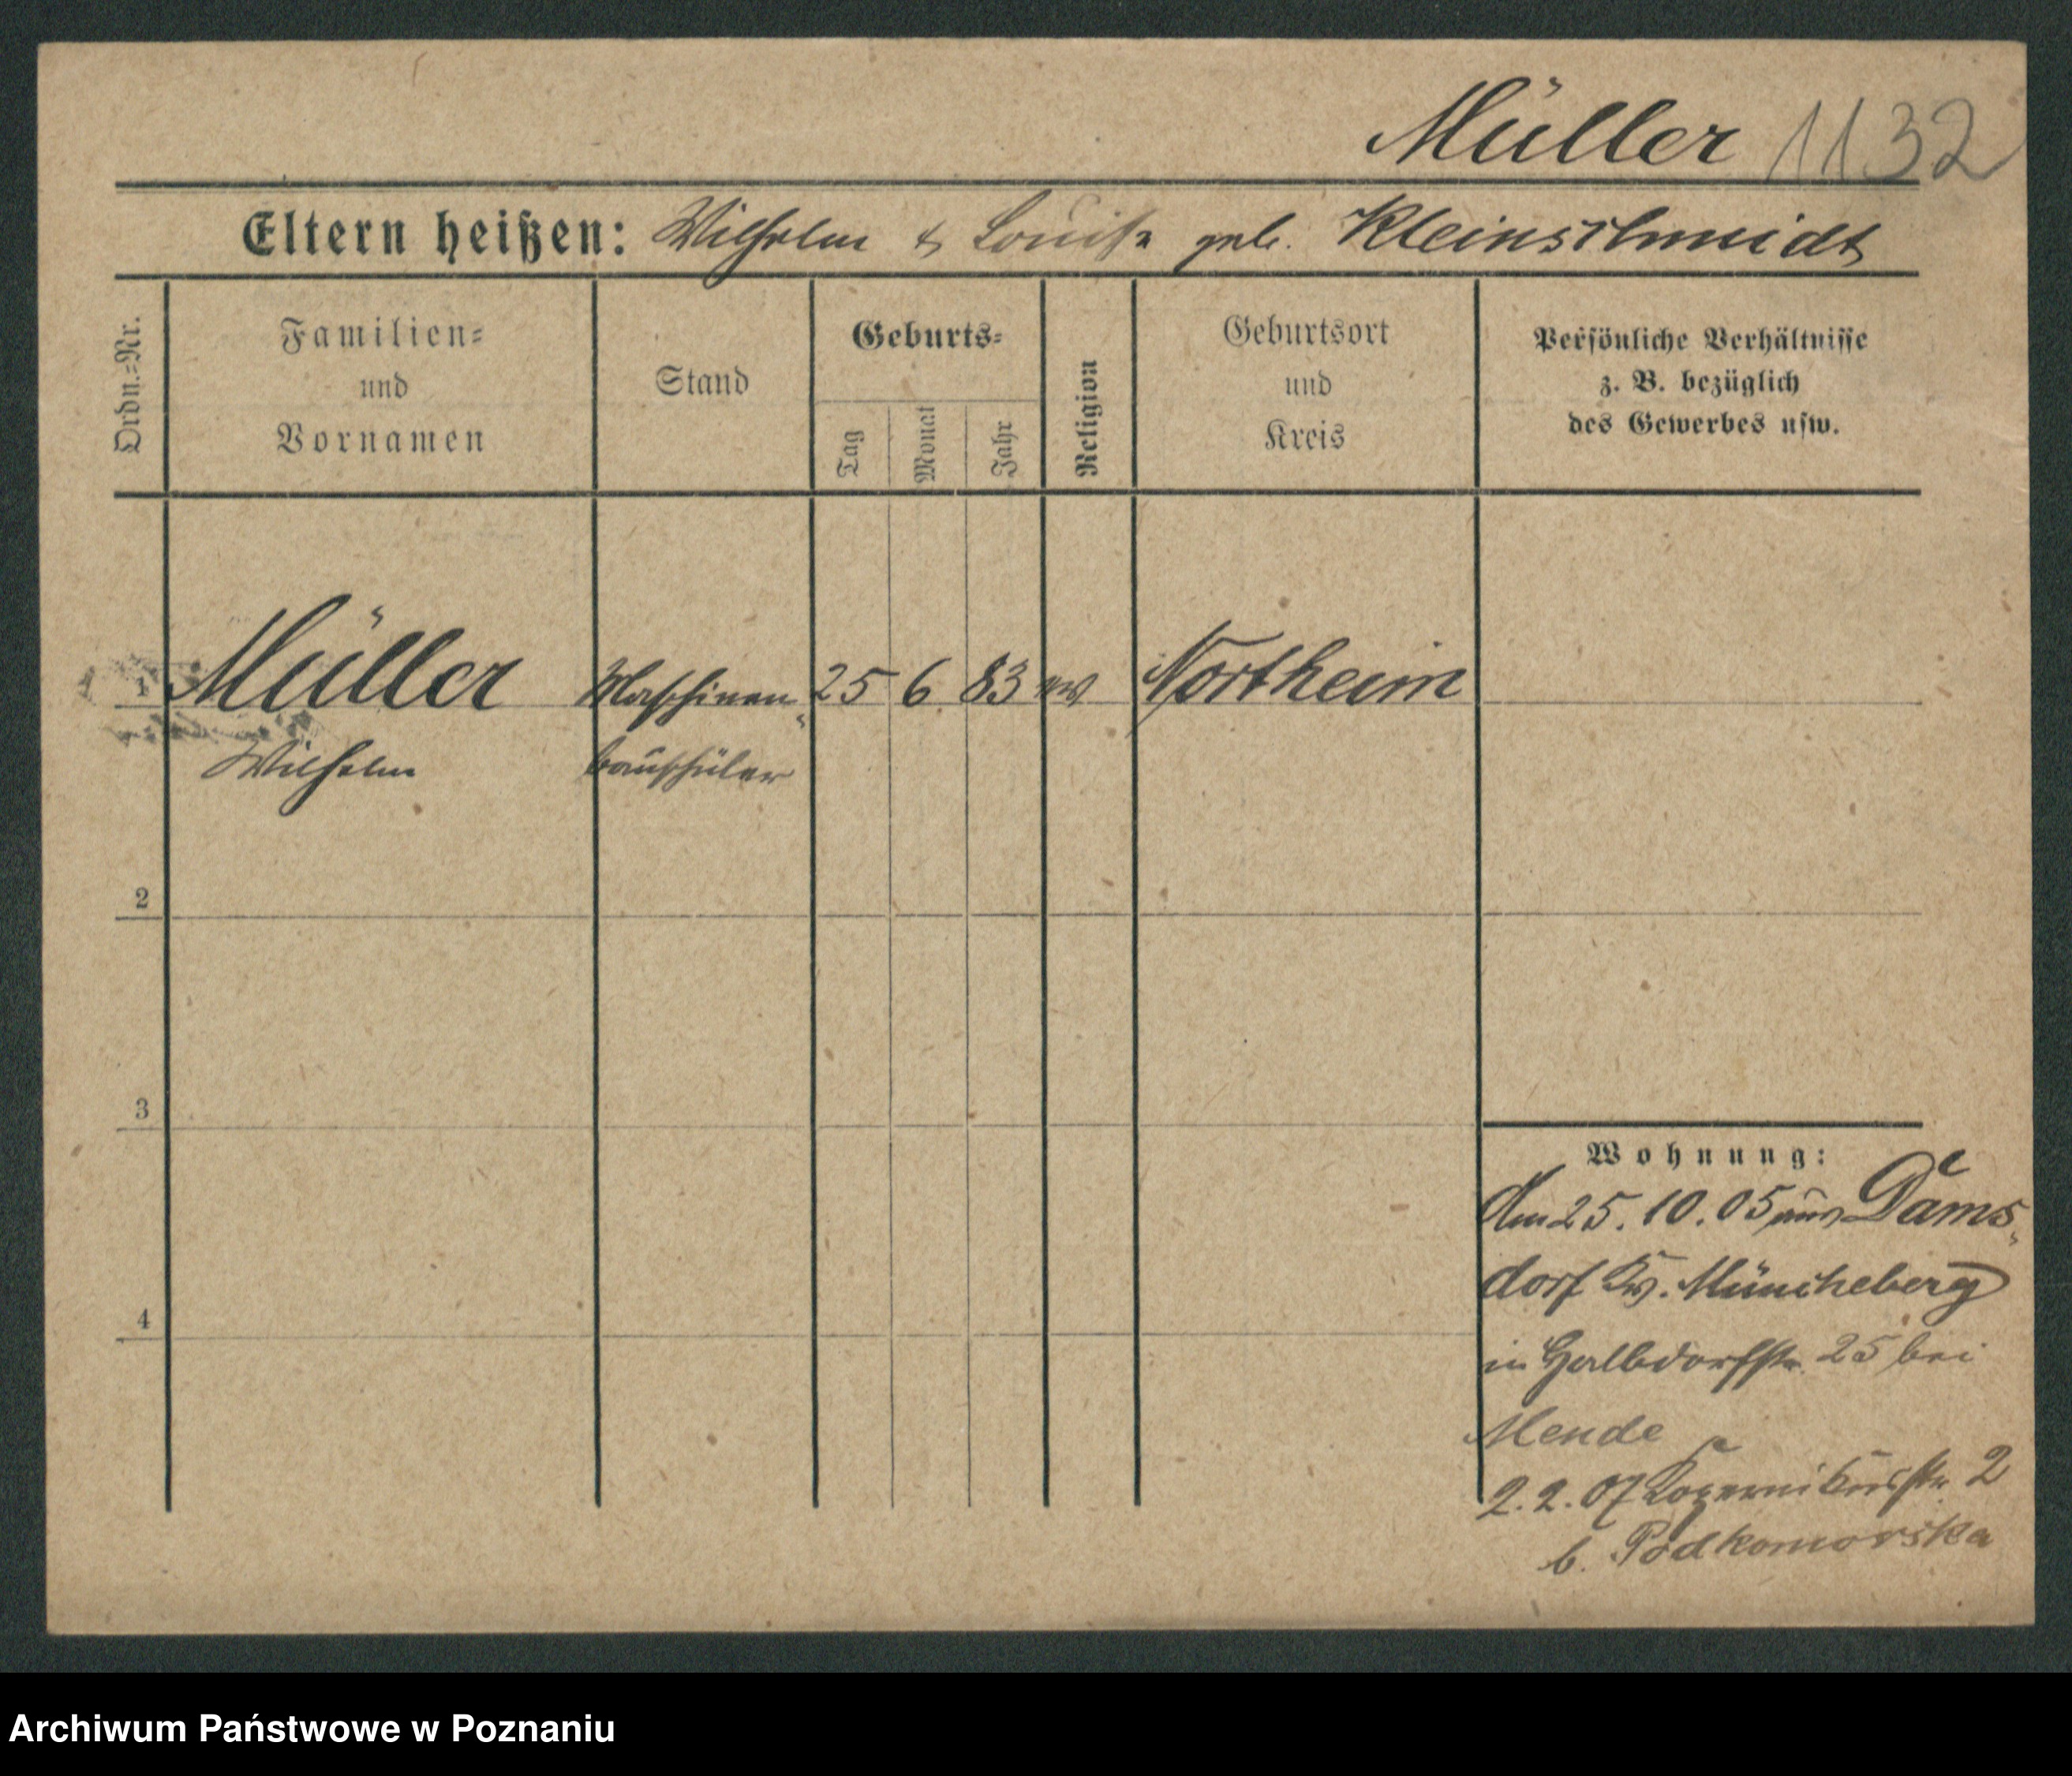 Müller 1132
Eltern heißen: Wilhelm & Louise geb. Kleinschmidt
Ordn.-Nr.
Familien-
und
Vornamen
Stand
Geburts-
Tag
Monat
Jahr
Religion
Geburtsort
und
Kreis
Persönliche Verhältnisse
z. B. bezüglich
des Gewerbes usw.
1 Müller Maschinen- 25 6 83 ev Northeim
Wilhelm bauschüler
2
3
4
Wohnung:
Am 25. 10. 05 aus Dams-
dorf Kr. Müncheberg
in Halbdorfstr. 25 bei
Mende
2.2.07 Kopernikusstr 2
b. Podkomorska
Archiwum Państwowe w Poznaniu